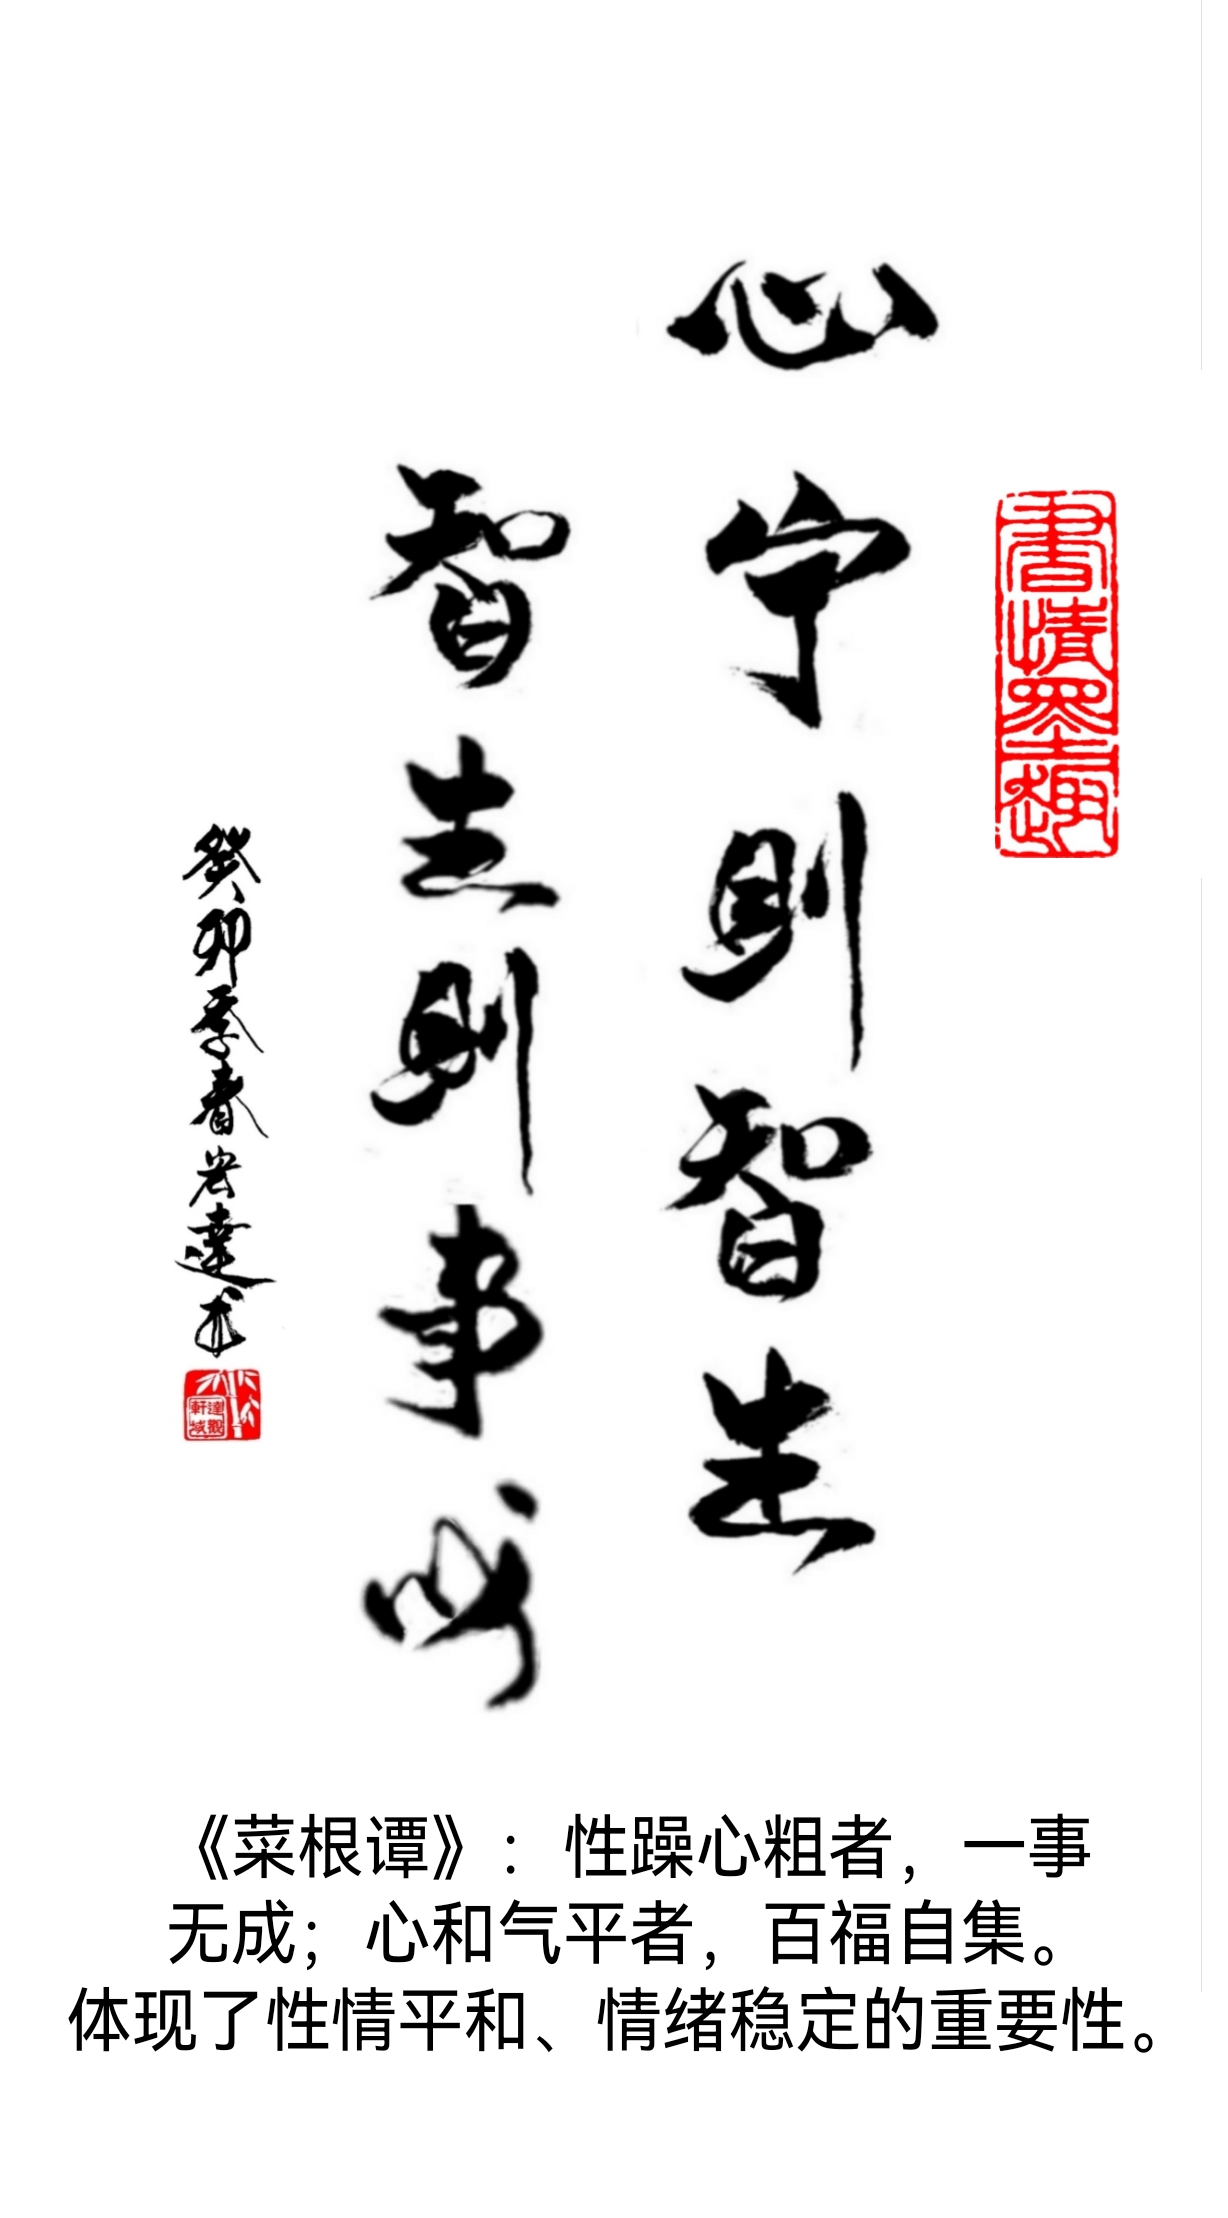 書情墨趣
心宁則智生
智生則事成
癸卯季春宏達书
《菜根谭》：性躁心粗者，一事
无成；心和气平者，百福自集。
体现了性情平和、情绪稳定的重要性。